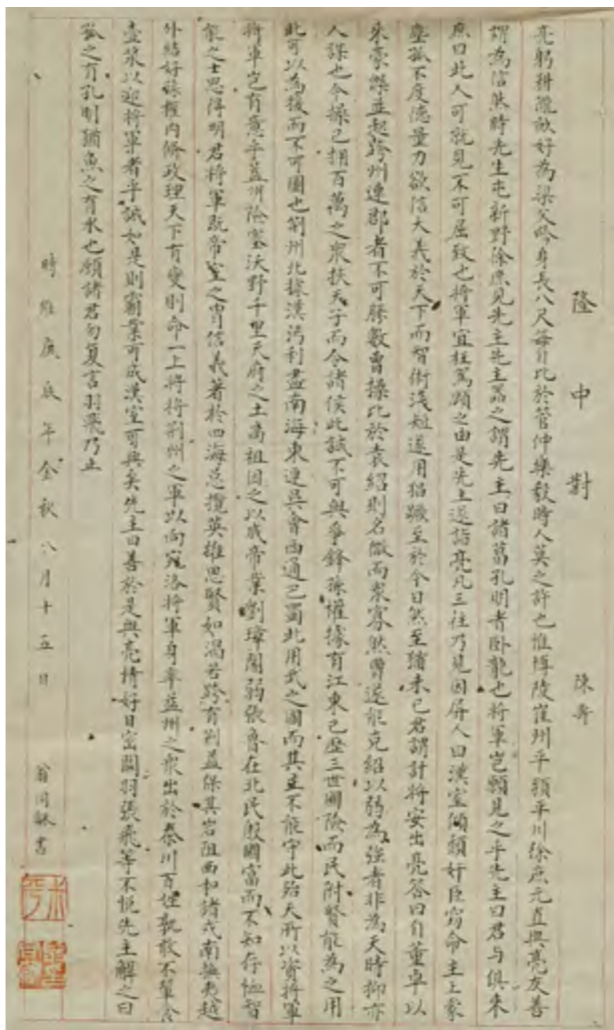 隆中對 陳壽
亮躬耕隴畝好為梁父吟身長八尺每自比於管仲樂毅時人莫之許也惟博陵崔州平潁平川徐庶元直與亮友善
謂為信然時先生屯新野徐庶見先主先主器之謂先主曰諸葛孔明者卧龍也將軍豈願見之乎先主曰君与俱來
庶曰此人可就見不可屈致也將軍宜枉駕顧之由是先主遂詣亮凡三往乃見因屏人曰漢室傾頹奸臣竊命主上蒙
塵孤不度德量力欲信大義於天下而智術淺短遂用猖蹶至於今日然至猶未已君謂計將安出亮答曰自董卓以
來豪傑並起跨州連郡者不可勝數曹操比於袁紹則名微而眾寡然曹遂能克紹以弱為強者非為天時抑亦
人謀也今操已擁百萬之眾扶天子而令諸侯此誠不可與爭鋒孫權據有江東已歷三世國險而民附賢能為之用
此可以為援而不可圖也荊州北據漢沔利盡南海東連吳會西通巴蜀此用武之國而其主不能守此殆天所以資將軍
將軍豈有意乎益州險塞沃野千里天府之土高祖因之以成帝業劉璋闇弱張魯在北民殷國富而不知存恤智
能之士思得明君將軍既帝室之胄信義著於四海總攬英雄思賢如渴若跨有荊益保其岩阻西和諸戎南撫夷越
外結好孫權內修政理天下有變則命一上將將荊州之軍以向宛洛將軍身率益州之眾出於秦川百姓孰敢不簞食
壺漿以迎將軍者乎誠如是則霸業可成漢室可興矣先主曰善於是與亮情好日密關羽張飛等不悅先主解之曰
孤之有孔明猶魚之有水也願諸君勿复言羽飛乃止
時維庚辰年金秋八月十五日
翁同龢書